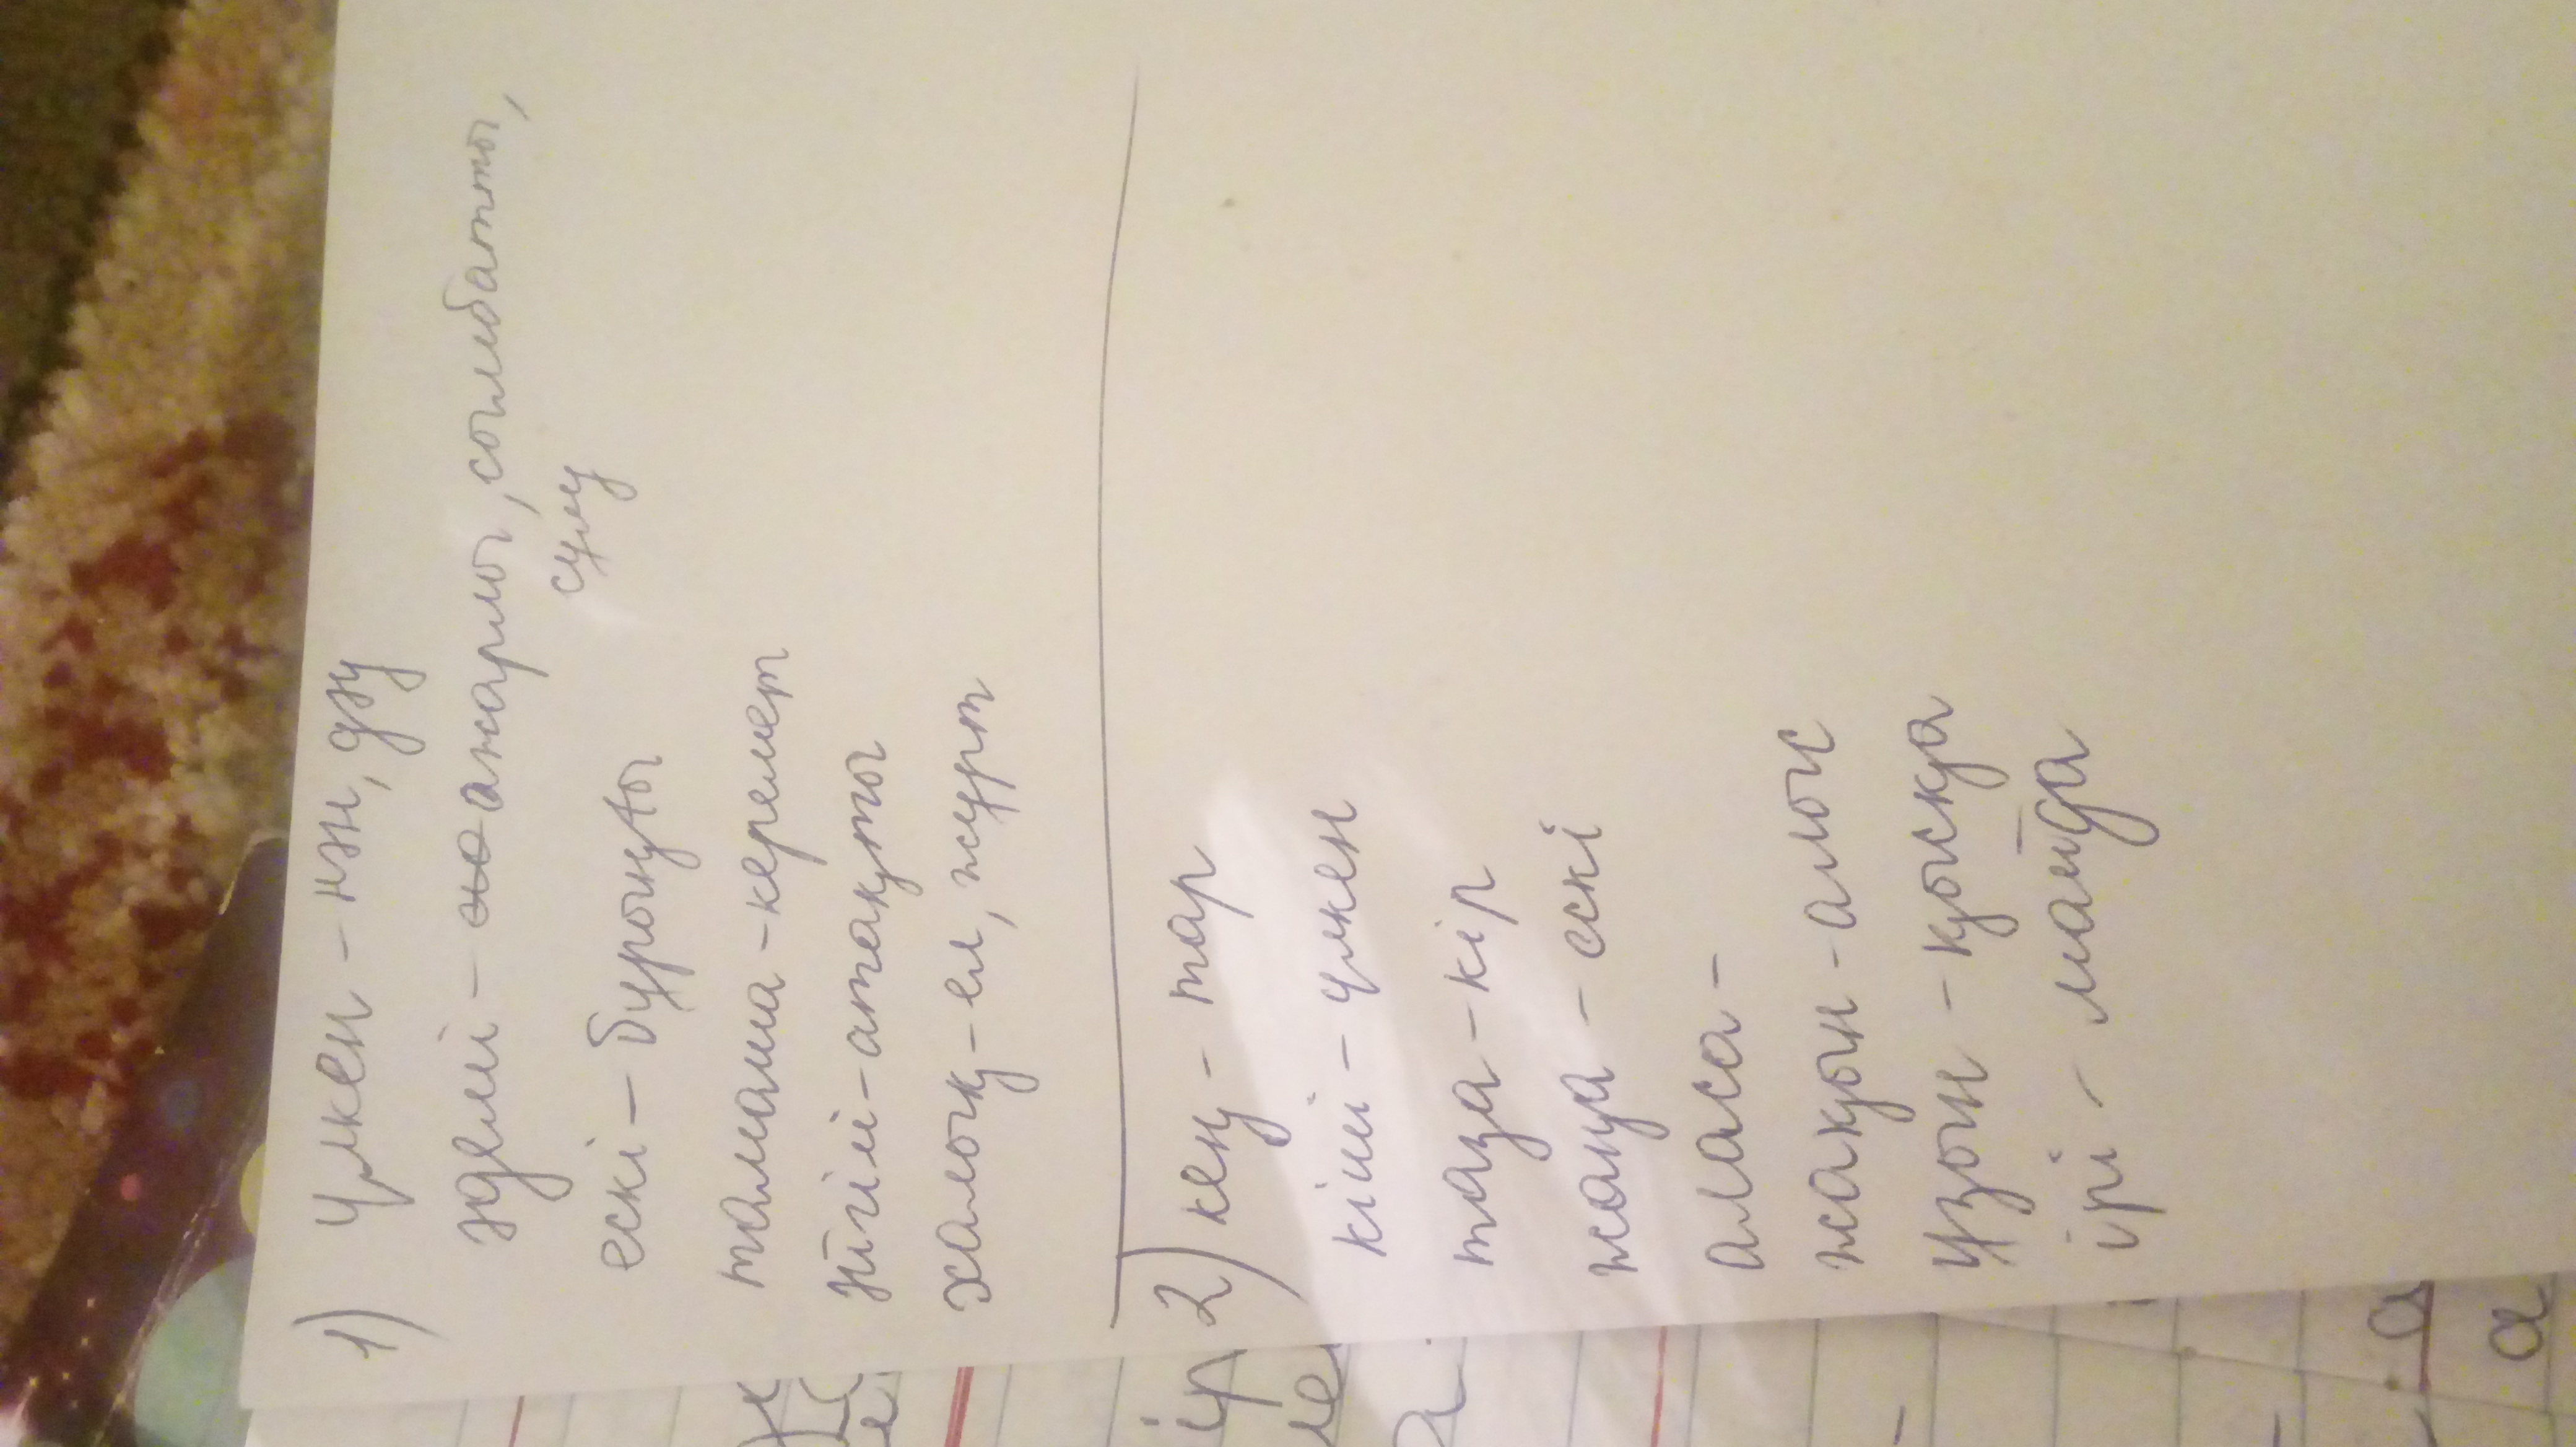 1) Үлкен – нән, дәу
әдемі – ажарлы, сымбатты,
сұлу
ескі – бұрынғы
тамаша – керемет
әйгілі – атақты
халық – ел, жұрт
2) кең – тар
кіші – үлкен
таза – кір
жаңа – ескі
аласа –
жақын – алыс
ұзын – қысқа
ірі – майда